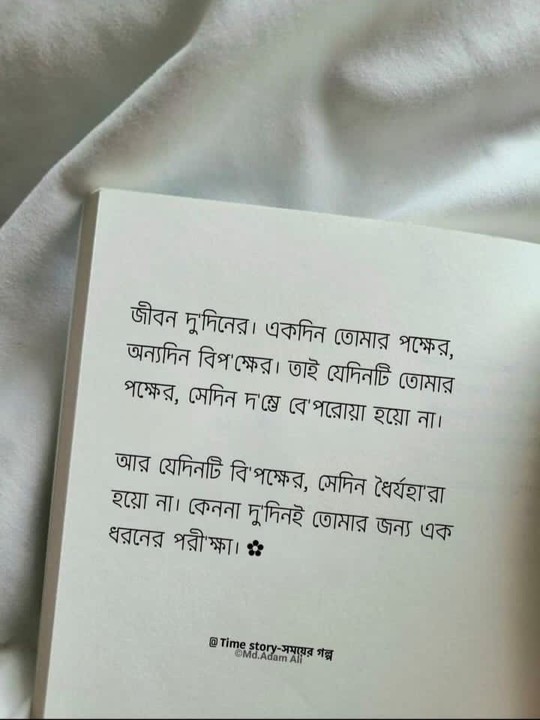 জীবন দু'দিনের। একদিন তোমার পক্ষের,
অন্যদিন বিপ'ক্ষের। তাই যেদিনটি তোমার
পক্ষের, সেদিন দ'ম্ভে বে'পরোয়া হয়ো না।
আর যেদিনটি বি'পক্ষের, সেদিন ধৈর্যহা'রা
হয়ো না। কেননা দু'দিনই তোমার জন্য এক
ধরনের পরী'ক্ষা। ✿
@Time story-সময়ের গল্প
©Md.Adam Ali